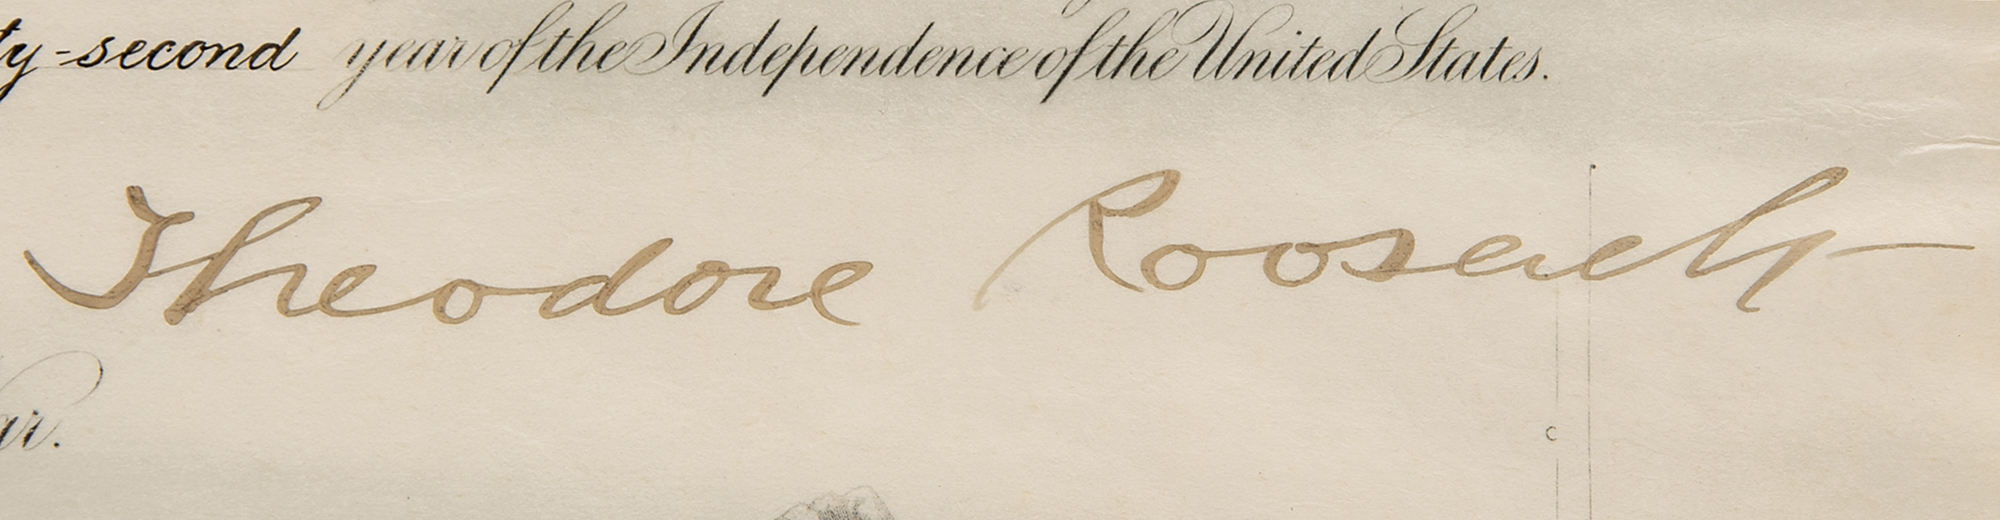 ty-second year of the Independence of the United States.
Theodore Roosevelt
ar.
c